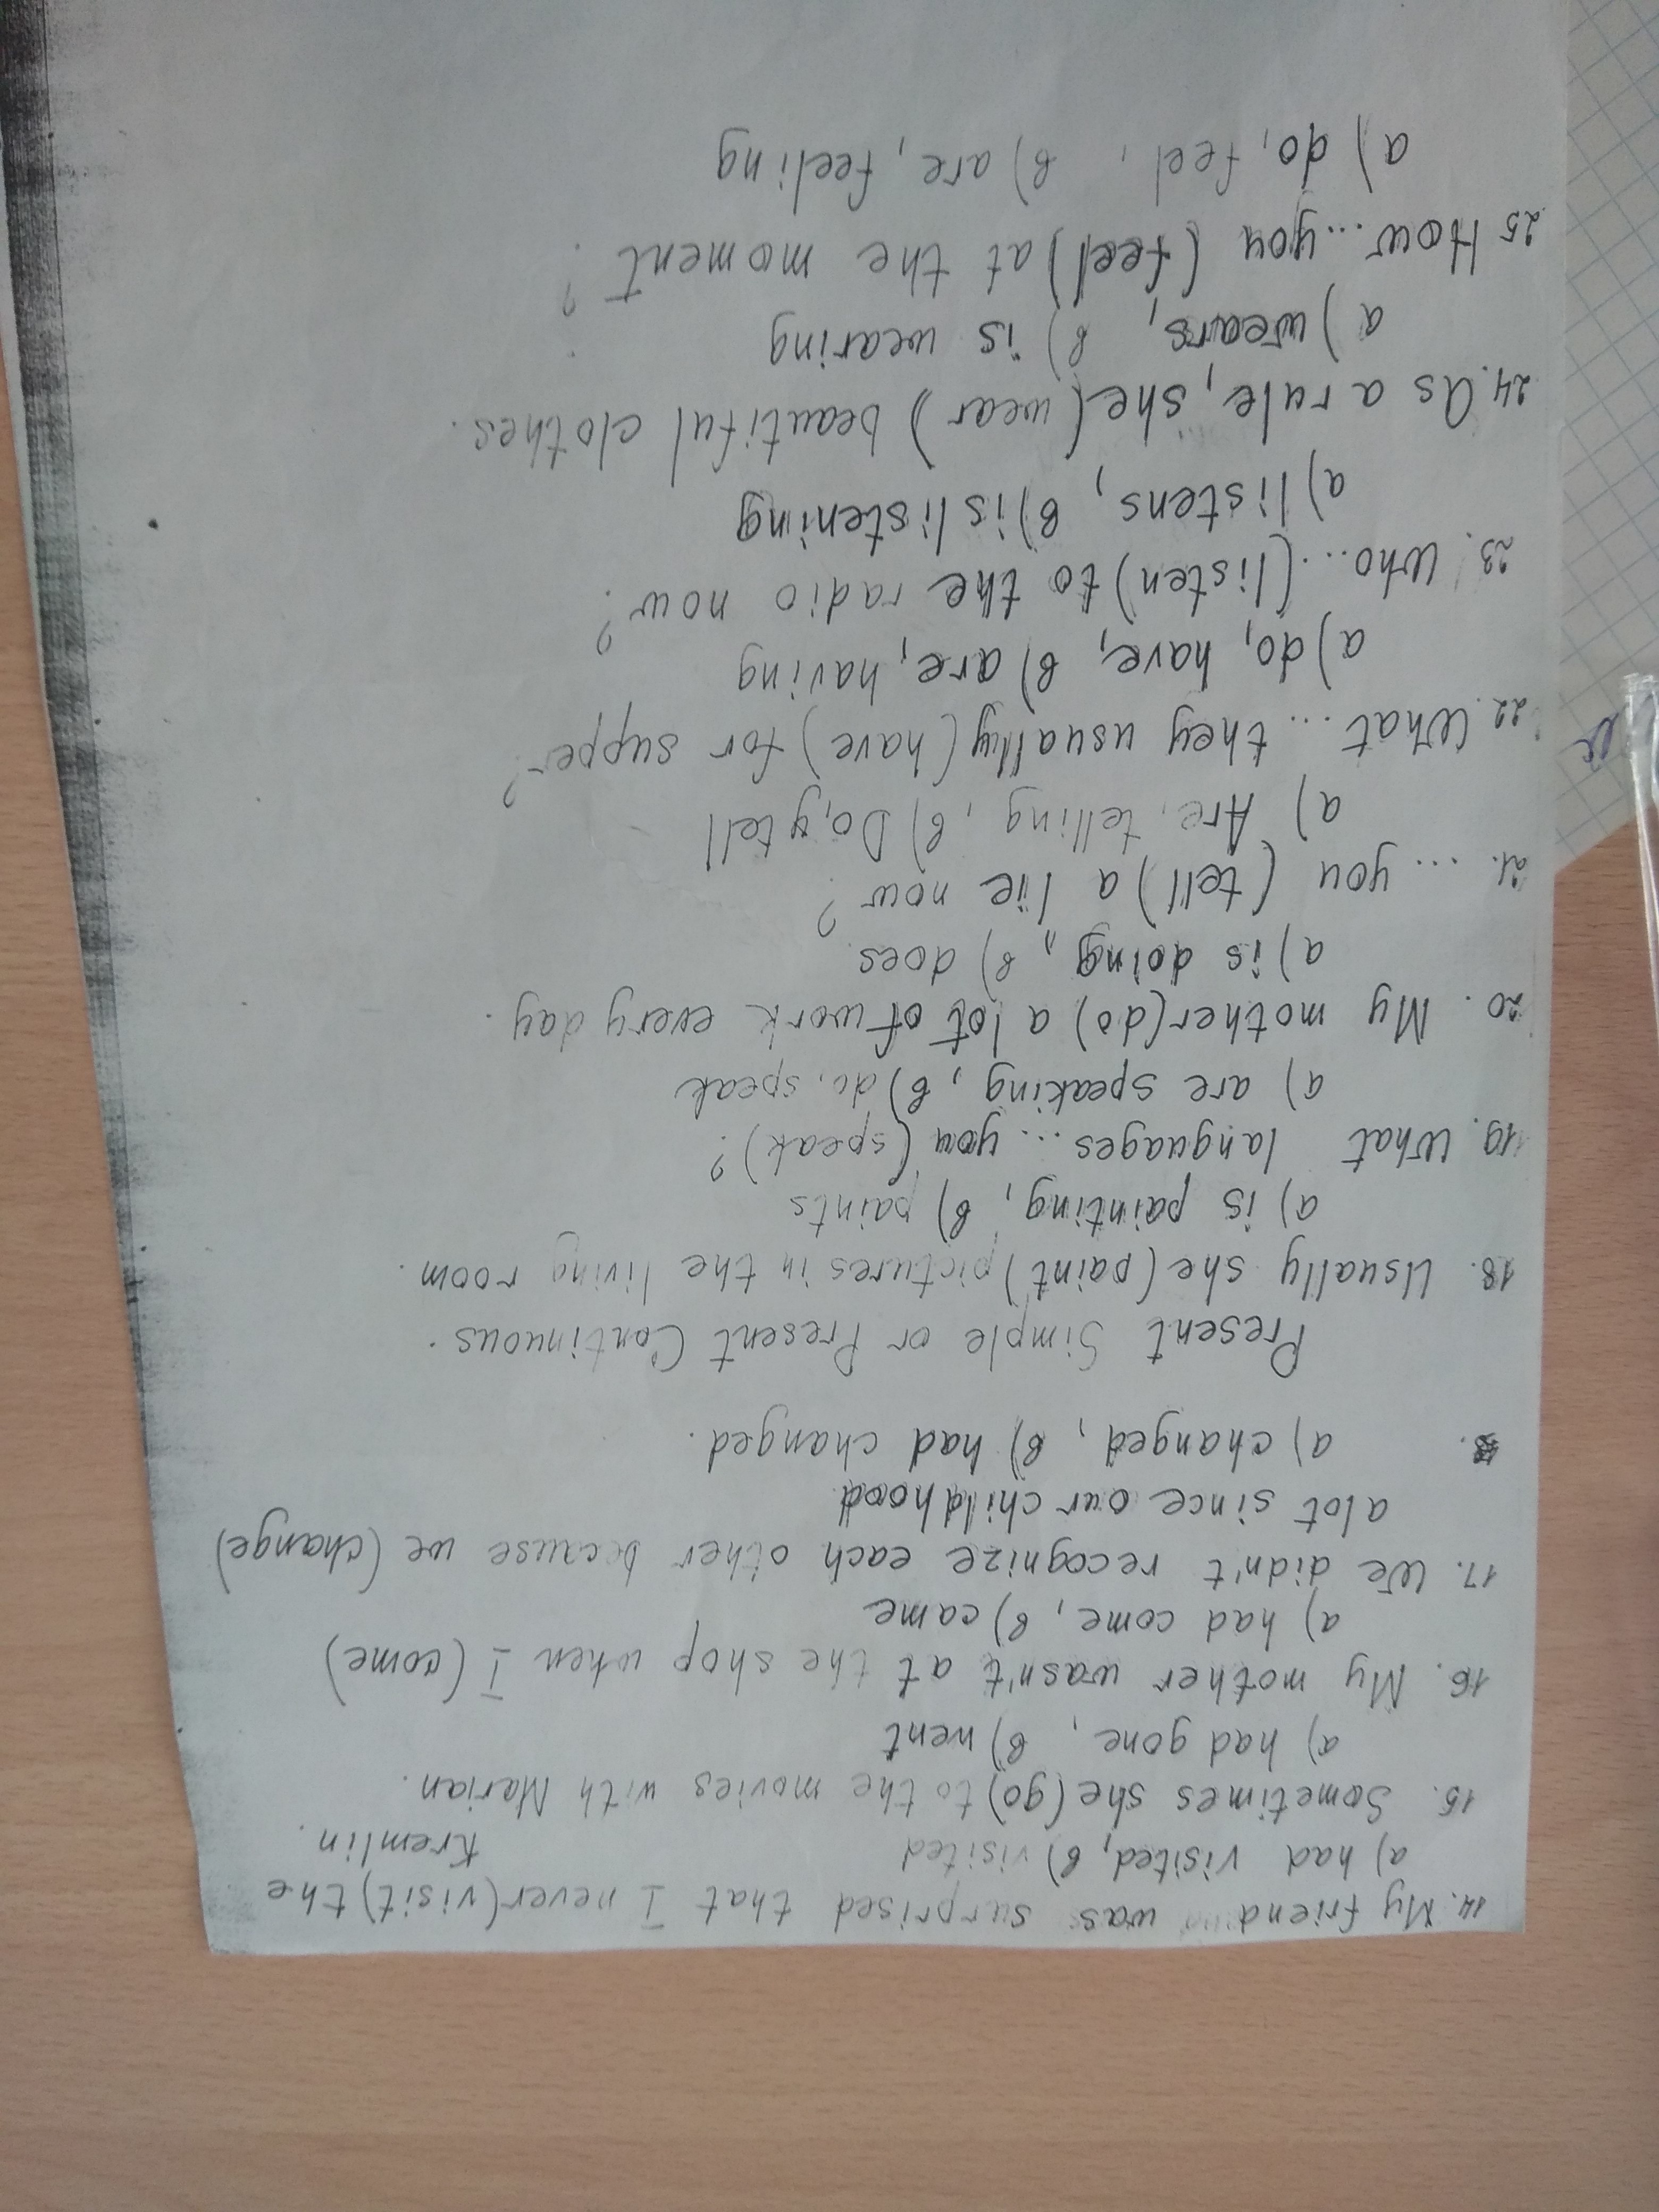 14. My friend was surprised that I never (visit) the
a) had visited, в) visited Kremlin.
15. Sometimes she (go) to the movies with Marian.
a) had gone, в) went
16. My mother wasn't at the shop when I (come)
a) had come, в) came
17. We didn't recognize each other because we (change)
a lot since our childhood
a) changed, в) had changed.
Present Simple or Present Continuous.
18. Usually she (paint) pictures in the living room.
a) is painting, в) paints
19. What languages ... you (speak)?
a) are speaking, в) do, speak
20. My mother (do) a lot of work every day.
a) is doing, в) does
21. ... you (tell) a lie now?
a) Are, telling, в) Do, tell
22. What ... they usually (have) for supper?
a) do, have, в) are, having
23. Who... (listen) to the radio now?
a) listens, в) is listening
24. As a rule, she (wear) beautiful clothes.
a) wears, в) is wearing
25 How... you (feel) at the moment?
a) do, feel, в) are, feeling